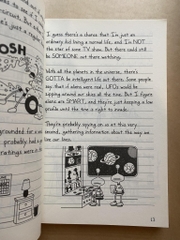 I guess there's a chance that I'm just an
ordinary kid living a normal life, and I'm NOT
the star of some TV show. But there could still
be SOMEONE out there watching.
With all the planets in the universe, there's
GOTTA be intelligent life out there. Some people
say that if aliens were real, UFOs would be
zipping around our skies all the time. But I figure
aliens are SMART, and they're just keeping a low
profile until the time is right to invade.
They're probably spying on us at this very
second, gathering information about the way we
live our lives.
OSH
grounded for a
ratings were in
13